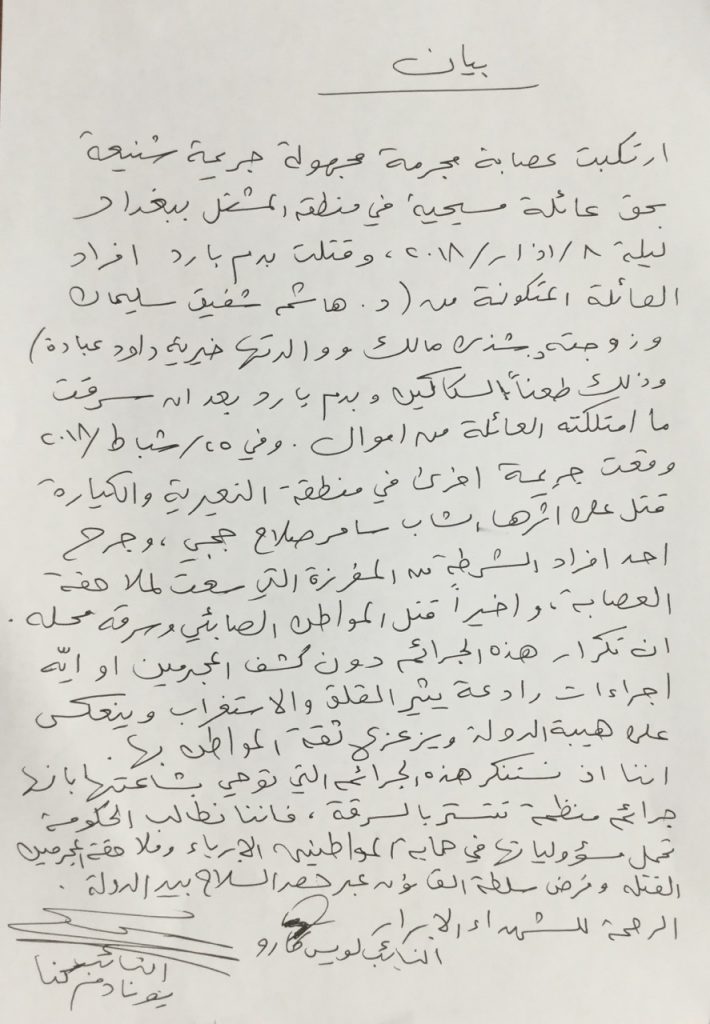 بيان
ارتكبت عصابة مجرمة مجهولة جريمة شنيعة
بحق عائلة مسيحية في منطقة المشتل ببغداد
ليلة ٨/اذار/٢٠١٨، وقتلت بدم بارد افراد
العائلة المتكونة من (د. هاشم شفيق سليمان
وزوجته شذى مالك ووالدتها خيرية داود عبادة)
وذلك طعناً بالسكاكين وبدم بارد بعد ان سرقت
ما امتلكته العائلة من اموال. وفي ٢٥/شباط/٢٠١٨
وقعت جريمة اخرى في منطقة النعيرية والكيارة
قتل على اثرها الشاب سامر صلاح ججي، وجرح
احد افراد الشرطة من المفرزة التي سعت لملاحقة
العصابة، واخيراً قتل المواطن الصابئي وسرقة محله.
ان تكرار هذه الجرائم دون كشف المجرمين او ايّه
اجراءات رادعة يثير القلق والاستغراب وينعكس
على هيبة الدولة ويزعزع ثقة المواطن بها.
اننا اذ نستنكر هذه الجرائم التي توحي بشاعتها بانها
جرائم منظمة تتستر بالسرقة، فاننا نطالب الحكومة
تحمل مسؤولياتها في حماية المواطنين الابرياء وملاحقة المجرمين
القتله وفرض سلطة القانون عبر حصر السلاح بيد الدولة.
الرحمة للشهداء الابرار
النائب لويس كارو
النائب
يونادم كنا